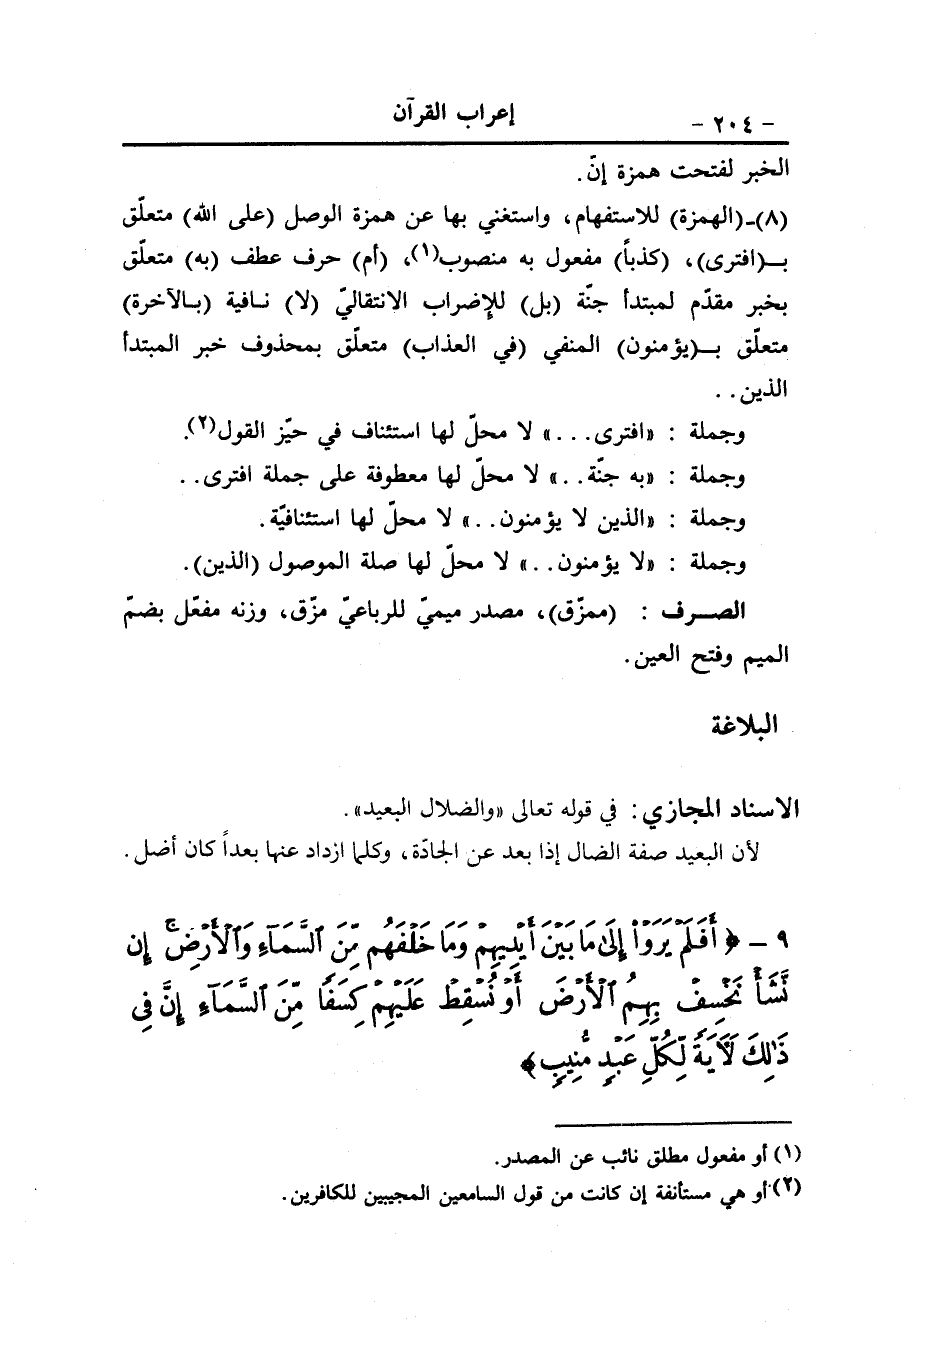 - ٢٠٤ -
إعراب القرآن
الخبر لفتحت همزة إنّ.
(٨)-(الهمزة) للاستفهام، واستغني بها عن همزة الوصل (على الله) متعلّق
بـ(افترى)، (كذباً) مفعول به منصوب(١)، (أم) حرف عطف (به) متعلّق
بخبر مقدّم لمبتدأ جنّة (بل) للإضراب الانتقاليّ (لا) نافية (بالآخرة)
متعلّق بـ(يؤمنون) المنفي (في العذاب) متعلّق بمحذوف خبر المبتدأ
الذين..
وجملة : «افترى...» لا محلّ لها استئناف في حيّز القول(٢).
وجملة : «به جنّة..» لا محلّ لها معطوفة على جملة افترى..
وجملة : «الذين لا يؤمنون..» لا محلّ لها استئنافيّة.
وجملة : «لا يؤمنون..» لا محلّ لها صلة الموصول (الذين).
الصرف : (ممزّق)، مصدر ميميّ للرباعيّ مزّق، وزنه مفعّل بضمّ
الميم وفتح العين.
البلاغة
الاسناد المجازي: في قوله تعالى «والضلال البعيد».
لأن البعيد صفة الضال إذا بعد عن الجادّة، وكلما ازداد عنها بعداً كان أضل.
٩ - ﴿ أَفَلَمْ يَرَوْا۟ إِلَىٰ مَا بَيْنَ أَيْدِيهِمْ وَمَا خَلْفَهُم مِّنَ ٱلسَّمَآءِ وَٱلْأَرْضِ ۚ إِن
نَّشَأْ نَخْسِفْ بِهِمُ ٱلْأَرْضَ أَوْ نُسْقِطْ عَلَيْهِمْ كِسَفًا مِّنَ ٱلسَّمَآءِ إِنَّ فِى
ذَٰلِكَ لَـَٔايَةً لِّكُلِّ عَبْدٍ مُّنِيبٍ﴾
(١) أو مفعول مطلق نائب عن المصدر.
(٢) أو هي مستأنفة إن كانت من قول السامعين المجيبين للكافرين.